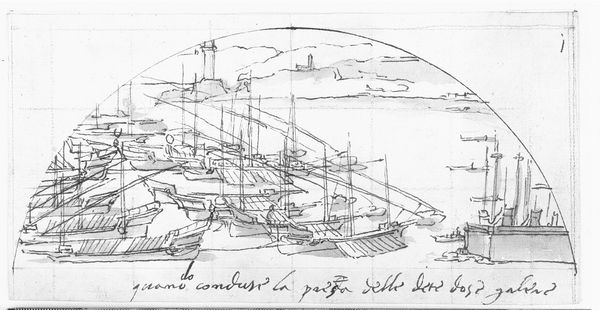 1
quando conduse la presa delle dete dose galere